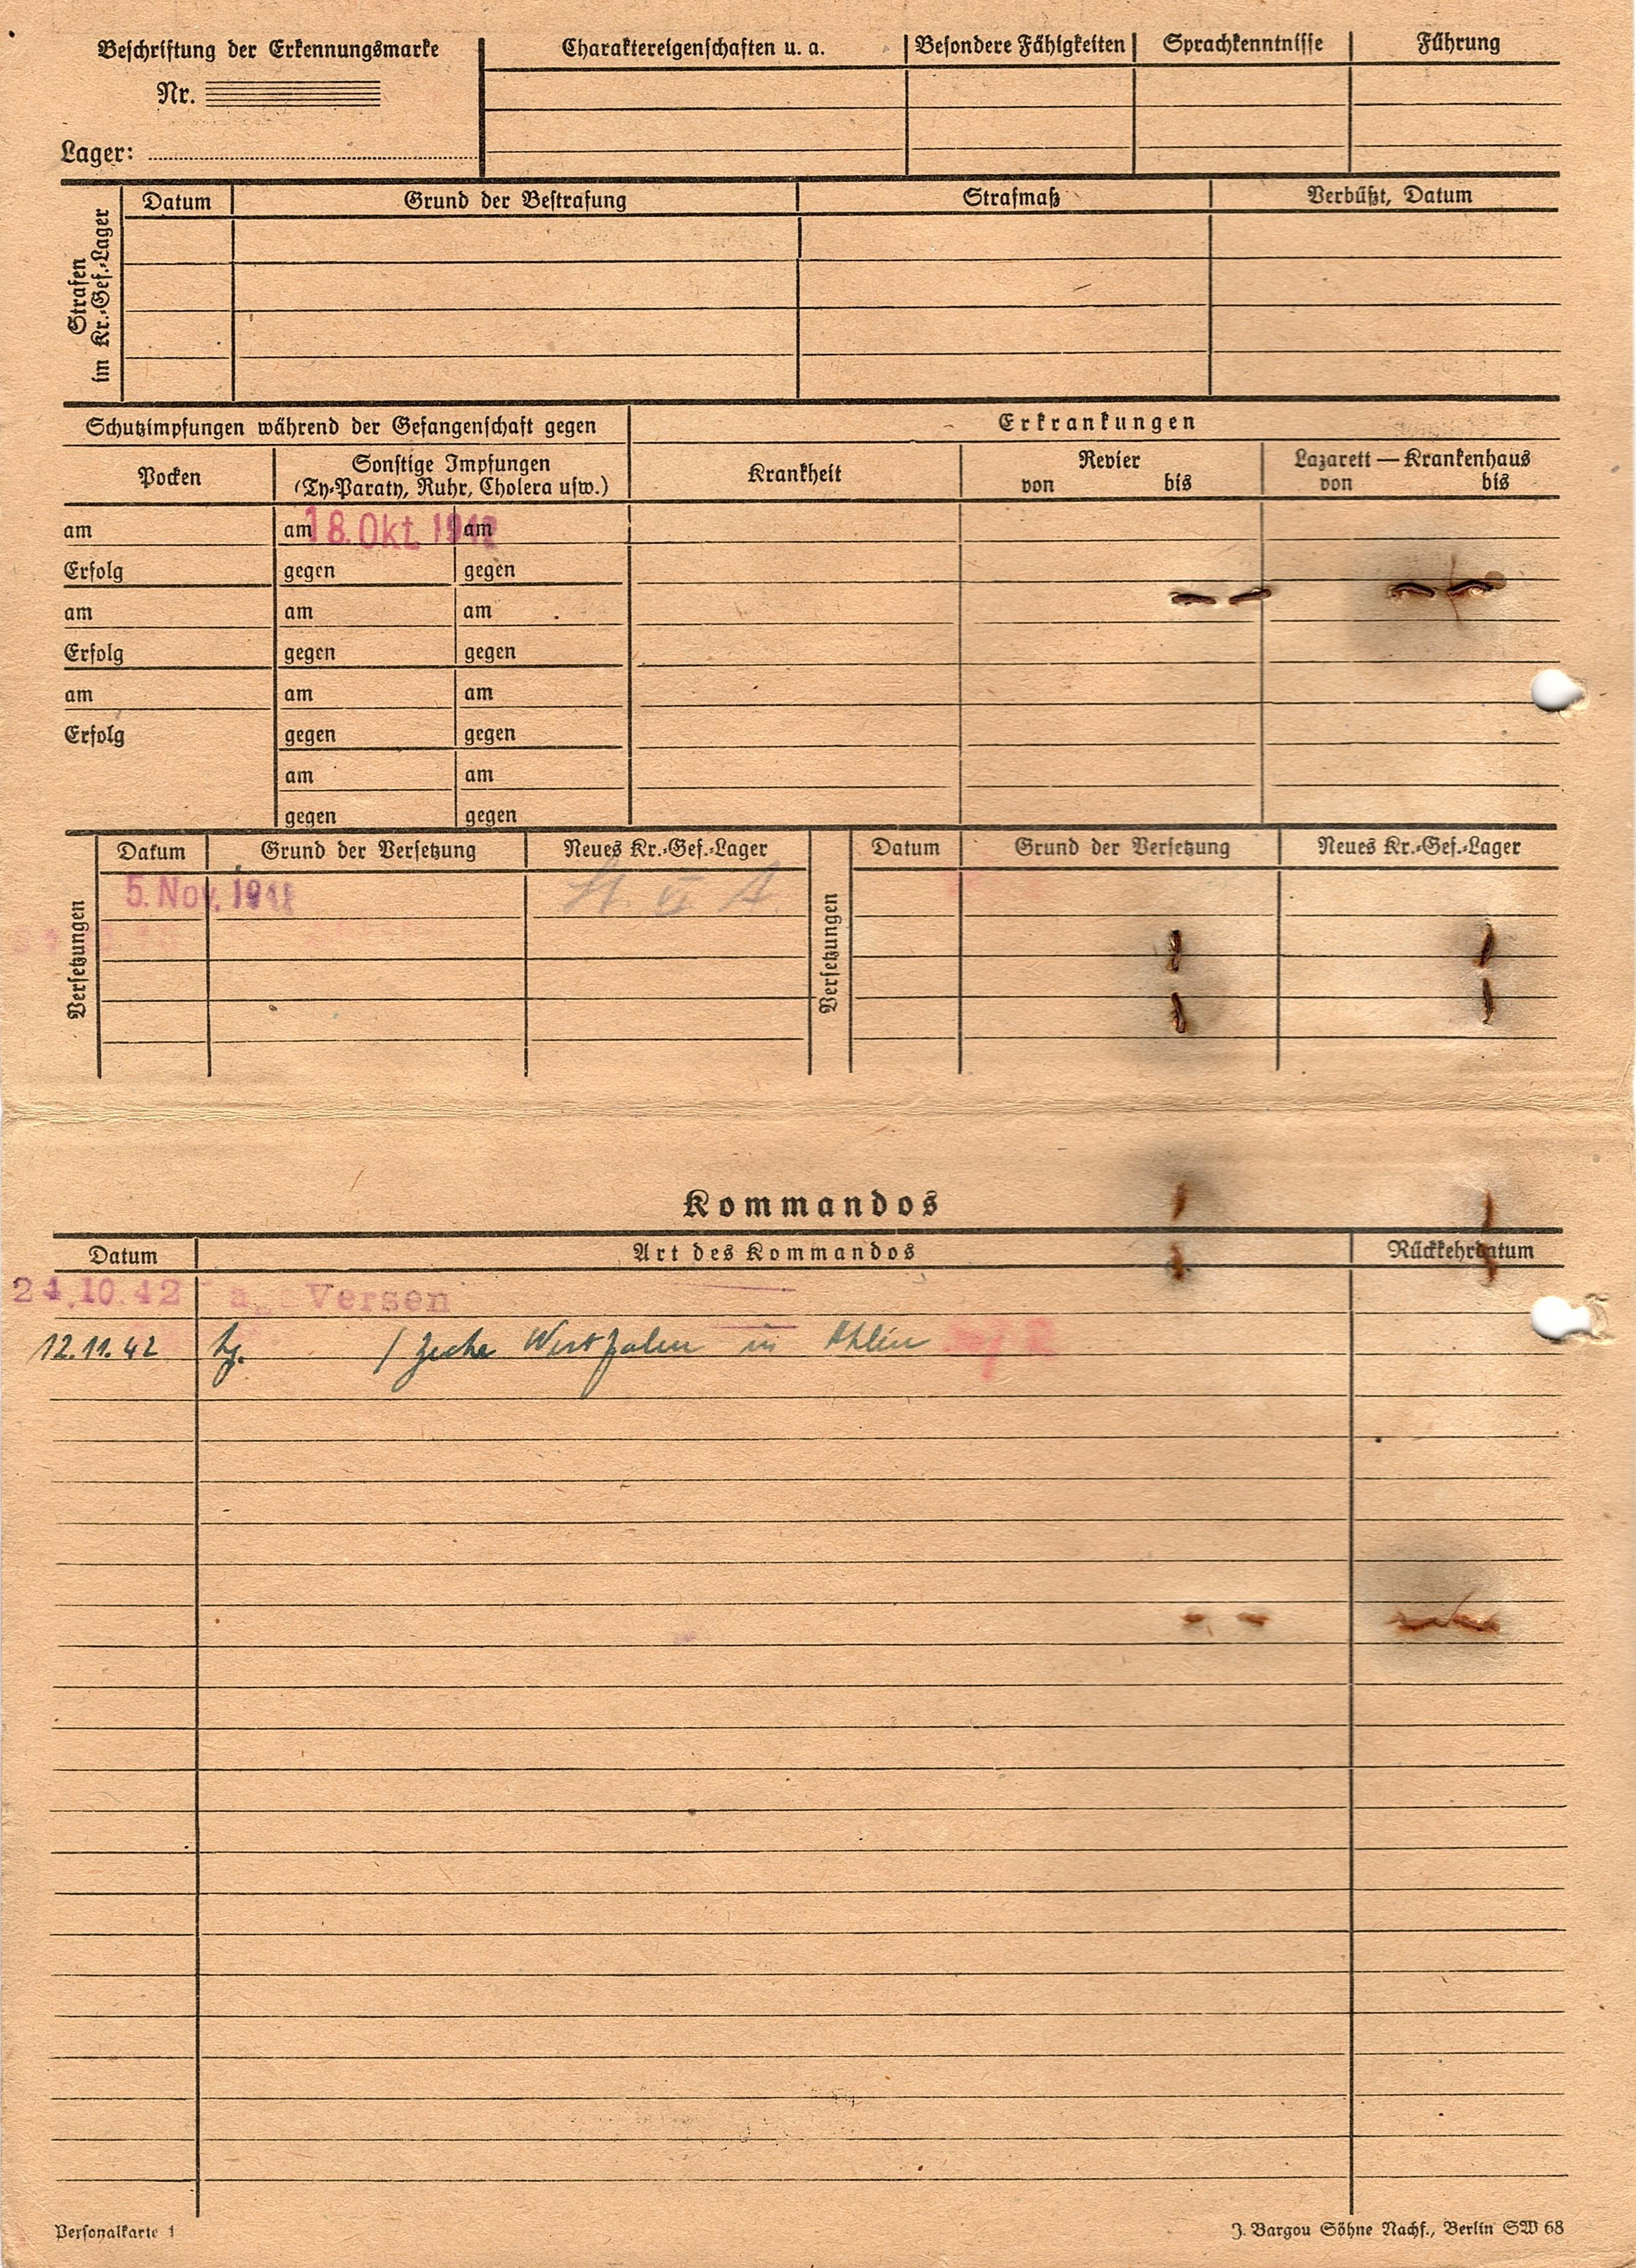 Beschriftung der Erkennungsmarke
Nr.
Lager:
Charaktereigenschaften u. a. Besondere Fähigkeiten Sprachkenntnisse Führung
Strafen
im Kr.-Gef.-Lager
Datum Grund der Bestrafung Strafmaß Verbüßt, Datum
Schutzimpfungen während der Gefangenschaft gegen
Erkrankungen
Pocken
Sonstige Impfungen
(Ty-Paraty, Ruhr, Cholera usw.)
Krankheit
Revier
von bis
Lazarett — Krankenhaus
von bis
am am 18. Okt. 1942 am
Erfolg gegen gegen
am am am
Erfolg gegen gegen
am am am
Erfolg gegen gegen
am am
gegen gegen
Versetzungen
Datum Grund der Versetzung Neues Kr.-Gef.-Lager
5. Nov. 1942 St. VI A
Versetzungen
Datum Grund der Versetzung Neues Kr.-Gef.-Lager
Kommandos
Datum Art des Kommandos Rückkehrdatum
24.10.42 Versen
12.11.42 Zeche Westfalen in Ahlen
Personalkarte 1
J. Bargou Söhne Nachf., Berlin SW 68